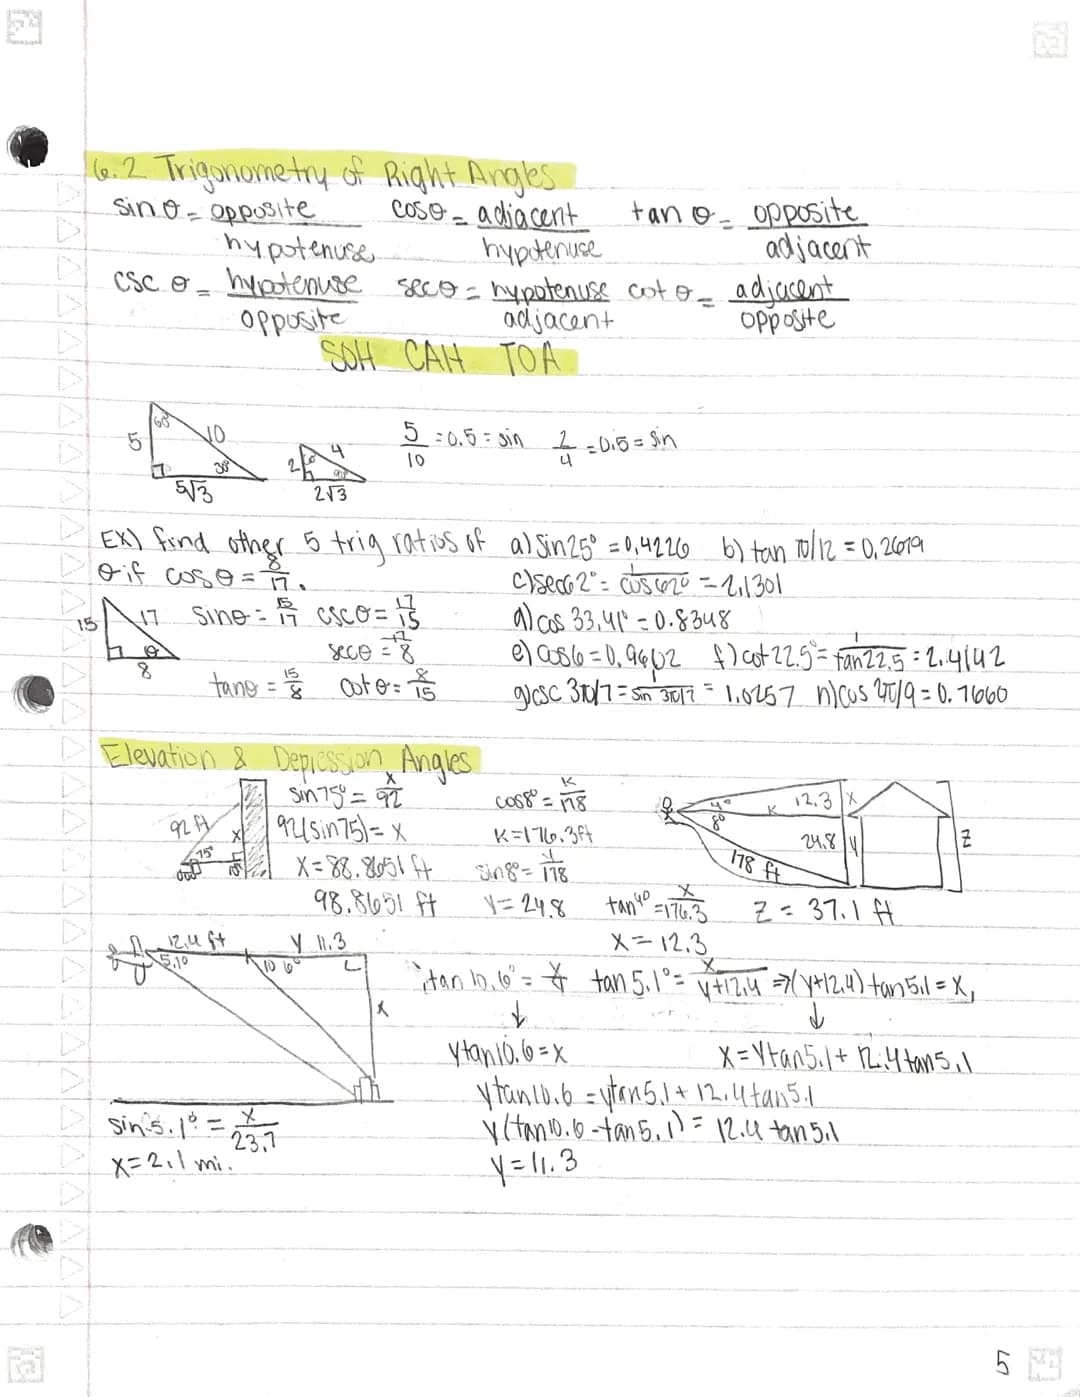 6.2 Trigonometry of Right Angles
sin θ = opposite/hypotenuse cosθ = adjacent/hypotenuse tan θ = opposite/adjacent
csc θ = hypotenuse/opposite secθ = hypotenuse/adjacent cot θ = adjacent/opposite
SOH CAH TOA
5 60° 10 30° 5√3
2 4 2√3
5/10 = 0.5 = sin 2/4 = 0.5 = sin
EX) find other 5 trig ratios of
θ if cosθ = 8/17.
15 17 θ 8
sinθ = 15/17 cscθ = 17/15
secθ = 17/8
tanθ = 15/8 cotθ = 8/15
a) sin25° = 0.4226 b) tan π/12 = 0.2679
c) sec62° = 1/cos62° = 2.1301
d) cos 33.41° = 0.8348
e) cos6 = 0.9602 f) cot 22.5° = 1/tan22.5 = 2.4142
g) csc 3π/7 = 1/sin 3π/7 = 1.0257 h) cos 2π/9 = 0.7660
Elevation & Depression Angles
92 ft 75° x
sin75° = x/92
92(sin75) = x
x = 88.8651 ft
98.8651 ft
cos8° = K/178
K = 176.3ft
sin8° = y/178
y = 24.8
4° 8° K 12.3 x
24.8 y z
178 ft
tan4° = x/176.3
x = 12.3
z = 37.1 ft
12.4 ft y 11.3
5.1° 10.6° x
sin 5.1° = x/23.7
x = 2.1 mi.
tan 10.6° = x/y tan 5.1° = x/y+12.4 ⇒ (y+12.4) tan5.1 = x,
↓ ↓
ytan10.6 = x x = ytan5.1 + 12.4tan5.1
ytan10.6 = ytan5.1 + 12.4tan5.1
y(tan10.6 - tan5.1) = 12.4 tan5.1
y = 11.3
5